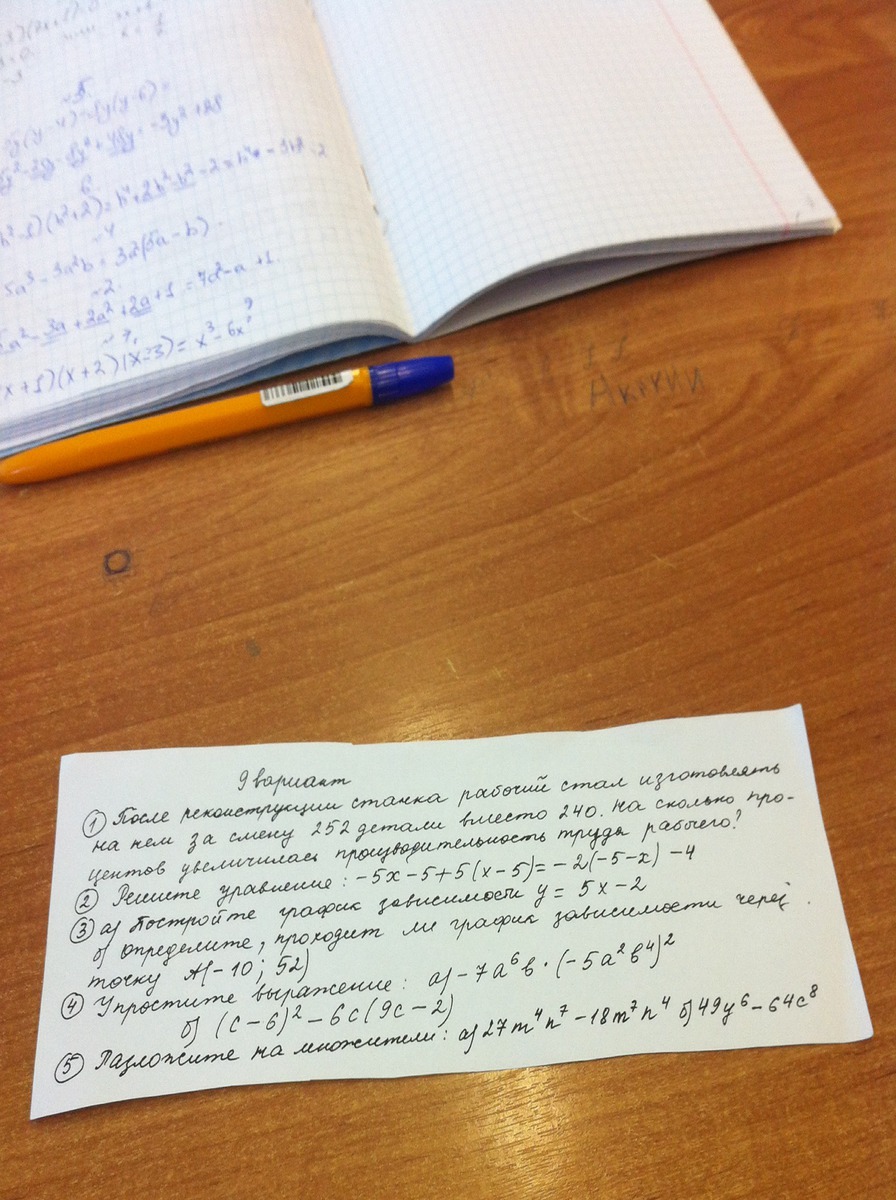 5.
(y-4)
y(y-6)=
6
(b²+2)=
-2
-4
5a³-3a²b=
-2.
-3a+2a²+2a+1=7a²-a+1.
7.
x+1)(x+2)(x-3)=x³-6x
Акакий
9 вариант
① После реконструкции станка рабочий стал изготовлять
на нем за смену 252 детали вместо 240. На сколько про-
центов увеличилась производительность труда рабочего?
② Решите уравнение: -5x-5+5(x-5)=-2(-5-x)-4
③ а) Постройте график зависимости y=5x-2
б) Определите, проходит ли график зависимости через
точку A(-10; 52)
④ Упростите выражение: а) -7a⁶b·(-5a²b⁴)²
б) (c-6)²-6c(9c-2)
⑤ Разложите на множители: а) 27m⁴n⁷-18m⁷n⁴ б) 49y⁶-64c⁸